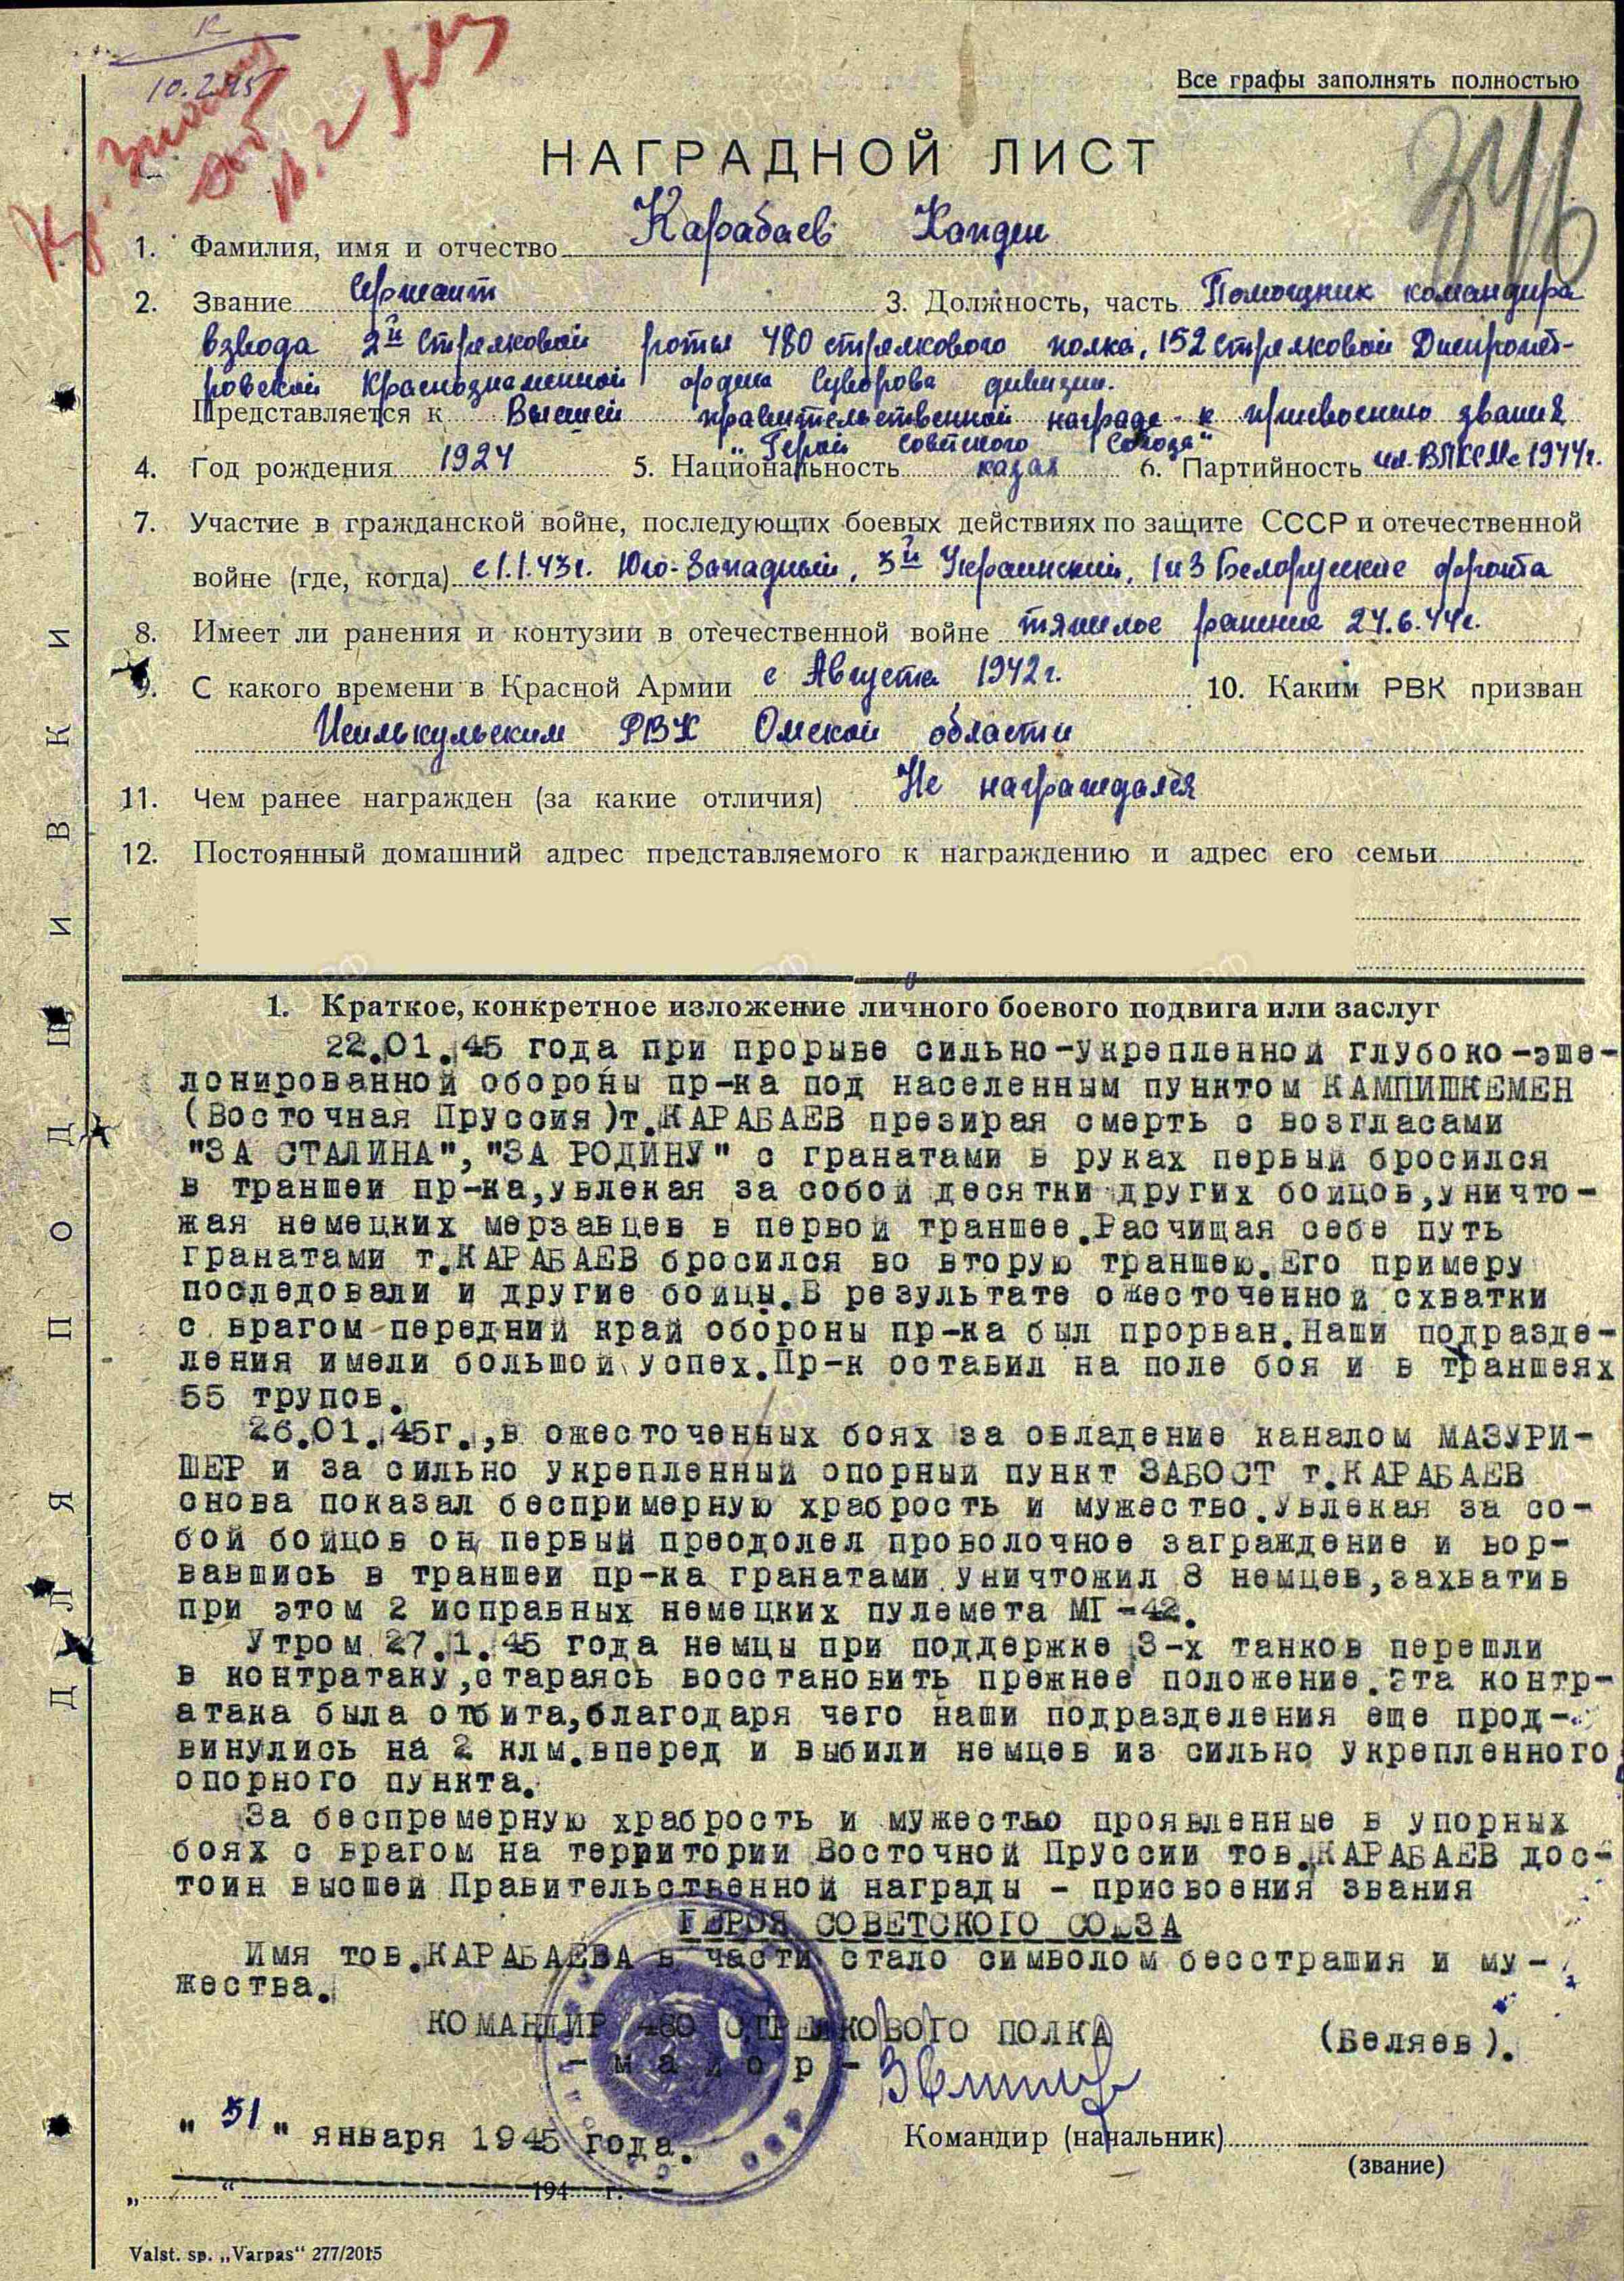 К
10.2.45
Кр. Знамя
10.2.45
Все графы заполнять полностью
346
НАГРАДНОЙ ЛИСТ
1. Фамилия, имя и отчество Карабаев Хапден
2. Звание Сержант 3. Должность, часть Помощник командира
взвода 2й стрелковой роты 480 стрелкового полка, 152 стрелковой Днепропет-
ровской Краснознаменной ордена Суворова дивизии.
Представляется к Высшей правительственной награде - к присвоению звания
„Герой Советского Союза"
4. Год рождения 1924 5. Национальность казах 6. Партийность чл. ВЛКСМ с 1944г.
7. Участие в гражданской войне, последующих боевых действиях по защите СССР и отечественной
войне (где, когда) с 1.1.43г. Юго-Западный, 3й Украинский, 1 и 3 Белорусские фронта
8. Имеет ли ранения и контузии в отечественной войне тяжелое ранение 24.6.44г.
9. С какого времени в Красной Армии с Августа 1942г. 10. Каким РВК призван
Исилькульским РВК Омской области
11. Чем ранее награжден (за какие отличия) Не награждался
12. Постоянный домашний адрес представляемого к награждению и адрес его семьи
1. Краткое, конкретное изложение личного боевого подвига или заслуг
22.01.45 года при прорыве сильно-укрепленной глубоко-эше-
лонированной обороны пр-ка под населенным пунктом КАМПИШКЕМЕН
(Восточная Пруссия)т.КАРАБАЕВ презирая смерть с возгласами
"ЗА СТАЛИНА", "ЗА РОДИНУ" с гранатами в руках первый бросился
в траншеи пр-ка,увлекая за собой десятки других бойцов,уничто-
жая немецких мерзавцев в первой траншее.Расчищая себе путь
гранатами т.КАРАБАЕВ бросился во вторую траншею.Его примеру
последовали и другие бойцы.В результате ожесточенной схватки
с врагом передний край обороны пр-ка был прорван.Наши подразде-
ления имели большой успех.Пр-к оставил на поле боя и в траншеях
55 трупов.
26.01.45г.,в ожесточенных боях за овладение каналом МАЗУРИ-
ШЕР и за сильно укрепленный опорный пункт ЗАБОСТ т.КАРАБАЕВ
снова показал беспримерную храбрость и мужество.Увлекая за со-
бой бойцов он первый преодолел проволочное заграждение и вор-
вавшись в траншеи пр-ка гранатами уничтожил 8 немцев,захватив
при этом 2 исправных немецких пулемета МГ-42.
Утром 27.1.45 года немцы при поддержке 3-х танков перешли
в контратаку,стараясь восстановить прежнее положение.Эта контр-
атака была отбита,благодаря чего наши подразделения еще прод-
винулись на 2 клм.вперед и выбили немцев из сильно укрепленного
опорного пункта.
За беспремерную храбрость и мужество проявленные в упорных
боях с врагом на территории Восточной Пруссии тов.КАРАБАЕВ дос-
тоин высшей Правительственной награды - присвоения звания
ГЕРОЯ СОВЕТСКОГО СОЮЗА
Имя тов.КАРАБАЕВА в части стало символом бесстрашия и му-
жества.
КОМАНДИР 480 СТРЕЛКОВОГО ПОЛКА
- майор - (Беляев).
"31" января 1945 года.
Командир (начальник)
(звание)
„ “ 194 г.
Valst. sp. „Varpas“ 277/2015
ДЛЯ ПОДШИВКИ